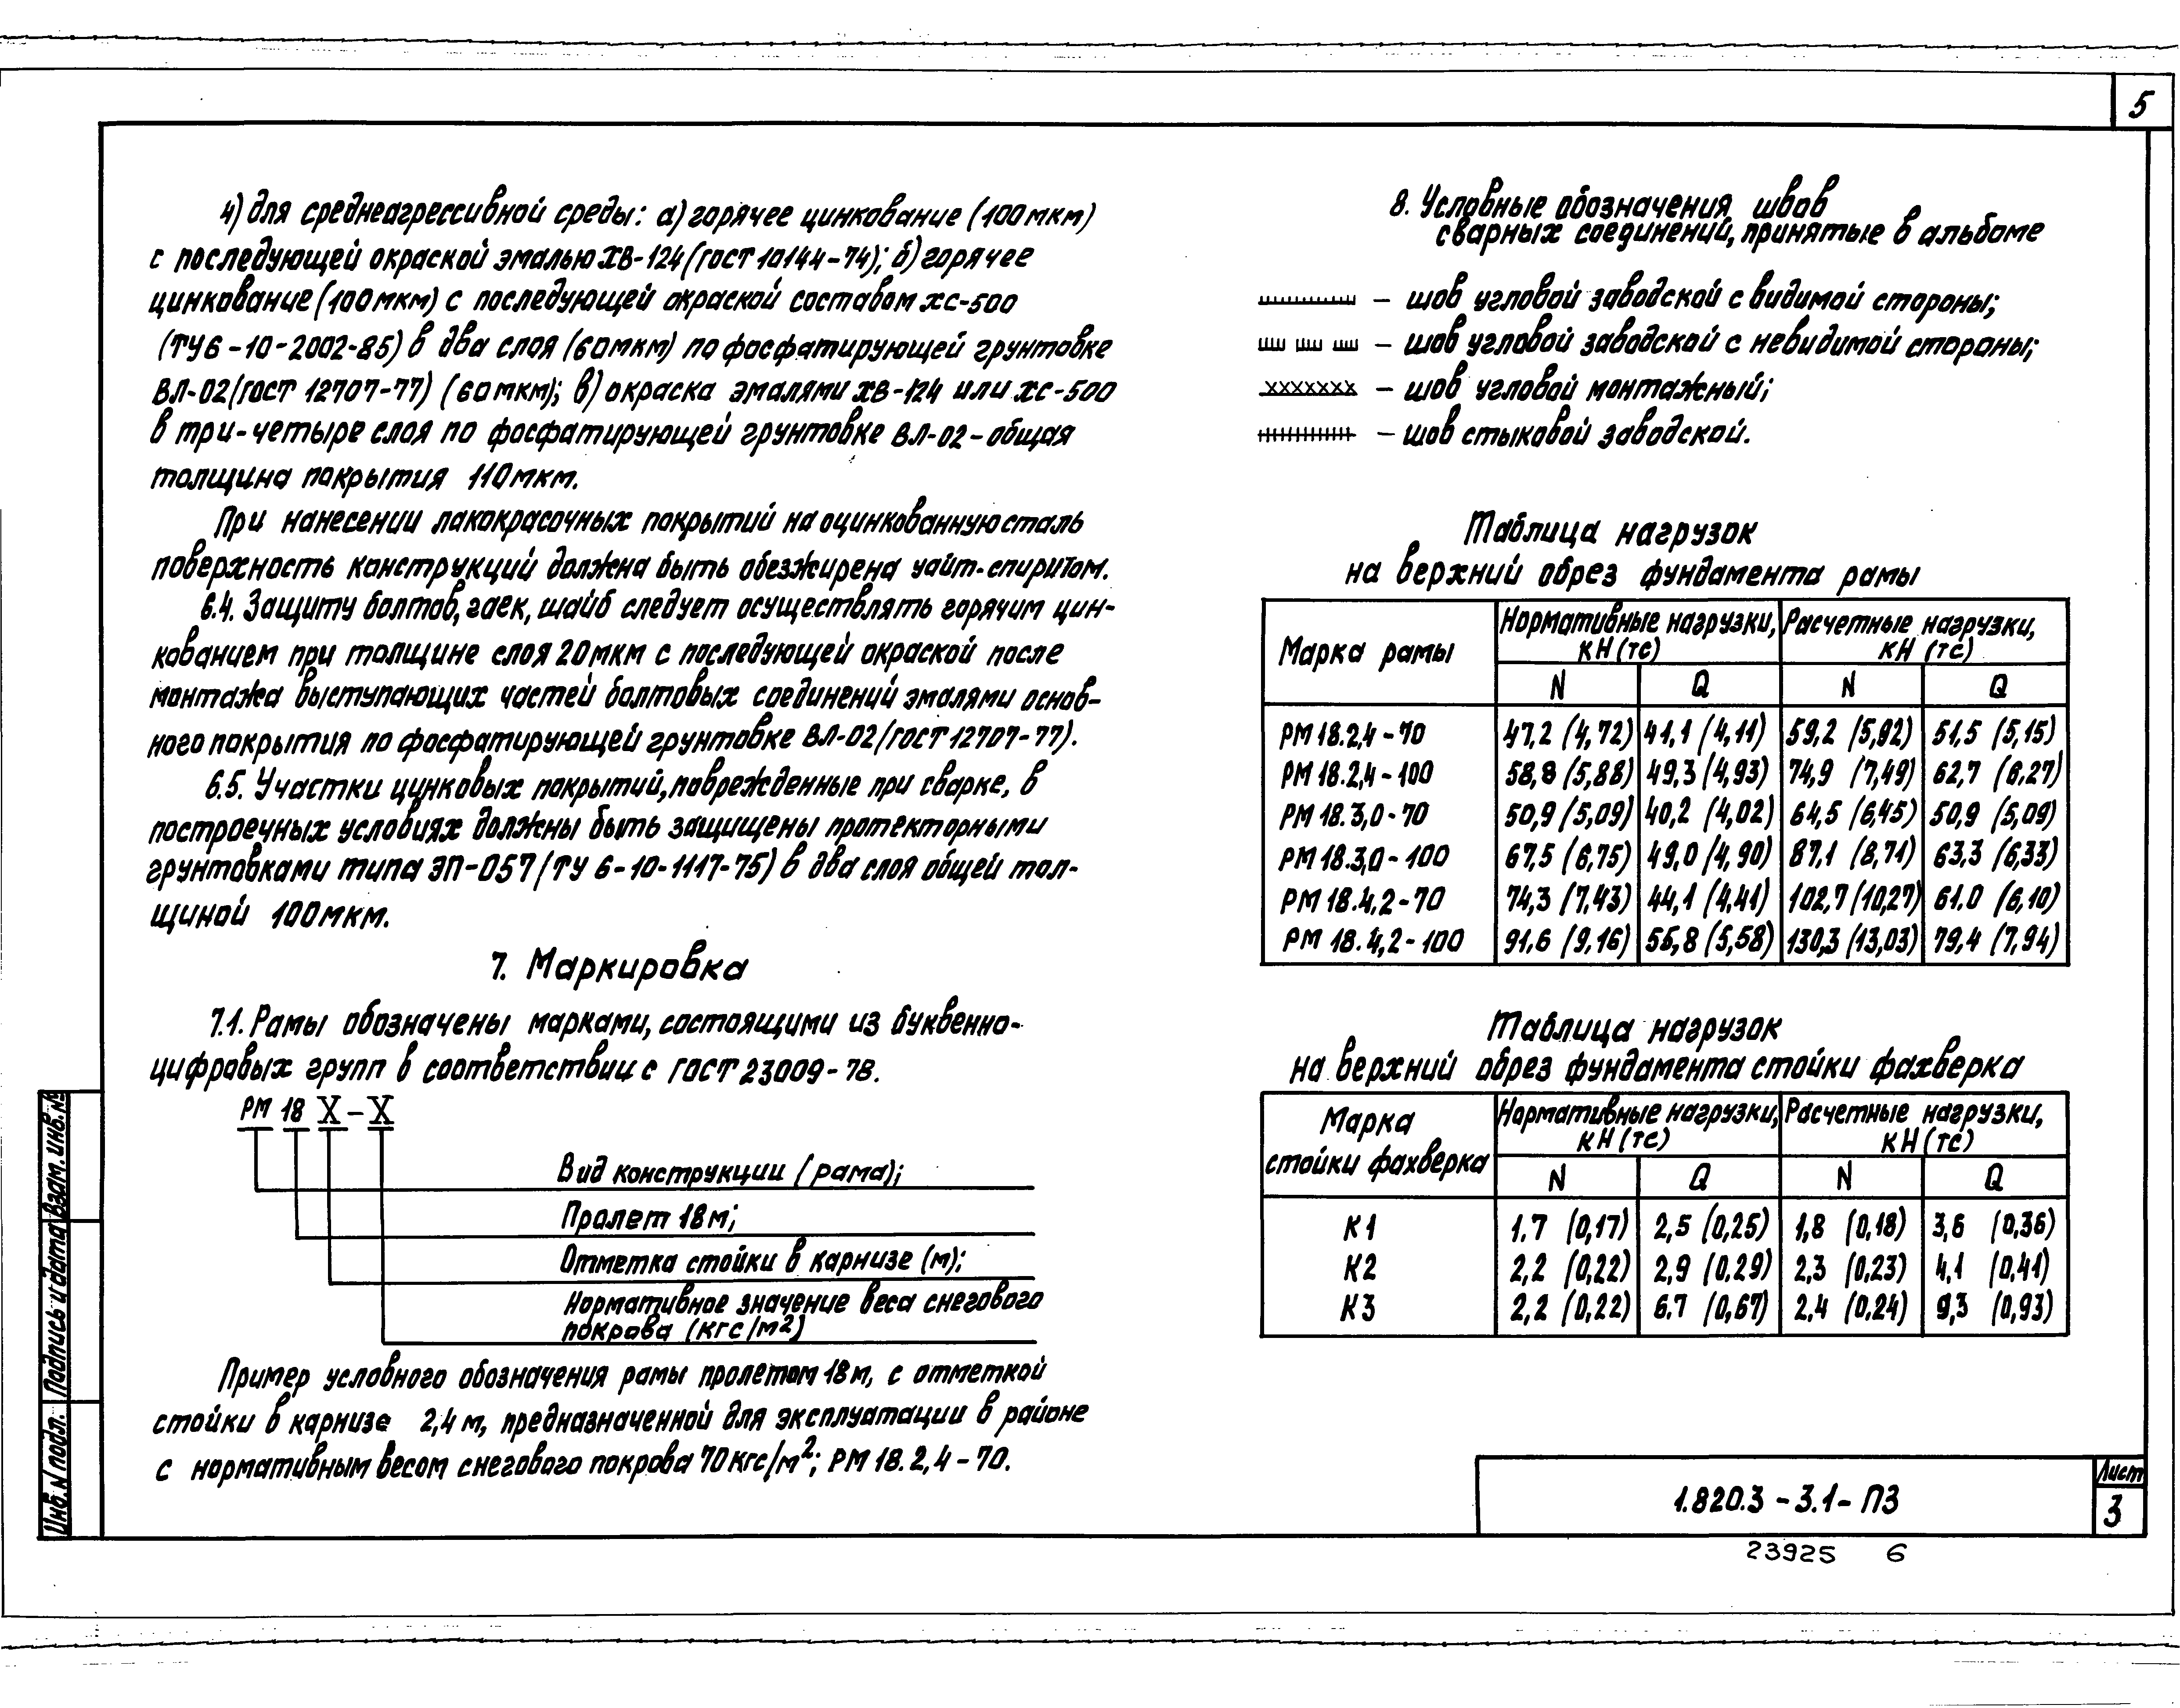 5
4) для среднеагрессивной среды: а) горячее цинкование (100 мкм)
с последующей окраской эмалью ХВ-124 (ГОСТ 10144-74); б) горячее
цинкование (100 мкм) с последующей окраской составом ХС-500
(ТУ 6-10-2002-85) в два слоя (60 мкм) по фосфатирующей грунтовке
ВЛ-02 (ГОСТ 12707-77) (60 мкм); в) окраска эмалями ХВ-124 или ХС-500
в три-четыре слоя по фосфатирующей грунтовке ВЛ-02 - общая
толщина покрытия 110 мкм.
При нанесении лакокрасочных покрытий на оцинкованную сталь
поверхность конструкций должна быть обезжирена уайт-спиритом.
6.4. Защиту болтов, гаек, шайб следует осуществлять горячим цин-
кованием при толщине слоя 20 мкм с последующей окраской после
монтажа выступающих частей болтовых соединений эмалями основ-
ного покрытия по фосфатирующей грунтовке ВЛ-02 (ГОСТ 12707-77).
6.5. Участки цинковых покрытий, поврежденные при сварке, в
построечных условиях должны быть защищены протекторными
грунтовками типа ЭП-057 (ТУ 6-10-1117-75) в два слоя общей тол-
щиной 100 мкм.
7. Маркировка
7.1. Рамы обозначены марками, состоящими из буквенно-
цифровых групп в соответствии с ГОСТ 23009-78.
РМ 18 X - X
Вид конструкции (рама);
Пролет 18 м;
Отметка стойки в карнизе (м);
Нормативное значение веса снегового
покрова (кгс/м²)
Пример условного обозначения рамы пролетом 18 м, с отметкой
стойки в карнизе 2,4 м, предназначенной для эксплуатации в районе
с нормативным весом снегового покрова 70 кгс/м²; РМ 18.2,4-70.
8. Условные обозначения швов
сварных соединений, принятые в альбоме
– шов угловой заводской с видимой стороны;
– шов угловой заводской с невидимой стороны;
– шов угловой монтажный;
– шов стыковой заводской.
Таблица нагрузок
на верхний обрез фундамента рамы
Марка рамы Нормативные нагрузки, кН (тс) Расчетные нагрузки, кН (тс)
N Q N Q
РМ 18.2,4-70 47,2 (4,72) 41,1 (4,11) 59,2 (5,92) 51,5 (5,15)
РМ 18.2,4-100 58,8 (5,88) 49,3 (4,93) 74,9 (7,49) 62,7 (6,27)
РМ 18.3,0-70 50,9 (5,09) 40,2 (4,02) 64,5 (6,45) 50,9 (5,09)
РМ 18.3,0-100 67,5 (6,75) 49,0 (4,90) 87,1 (8,71) 63,3 (6,33)
РМ 18.4,2-70 74,3 (7,43) 44,1 (4,41) 102,7 (10,27) 61.0 (6,10)
РМ 18.4,2-100 91,6 (9,16) 55,8 (5,58) 130,3 (13,03) 79,4 (7,94)
Таблица нагрузок
на верхний обрез фундамента стойки фахверка
Марка стойки фахверка Нормативные нагрузки, кН (тс) Расчетные нагрузки, кН (тс)
N Q N Q
К1 1.7 (0,17) 2,5 (0,25) 1,8 (0,18) 3,6 (0,36)
К2 2,2 (0,22) 2,9 (0,29) 2,3 (0,23) 4,1 (0,41)
К3 2,2 (0,22) 6.7 (0,67) 2,4 (0,24) 9,3 (0,93)
Инв. N подл. Подпись и дата Взам. инв. №
1.820.3-3.1-ПЗ
Лист
3
23925 6